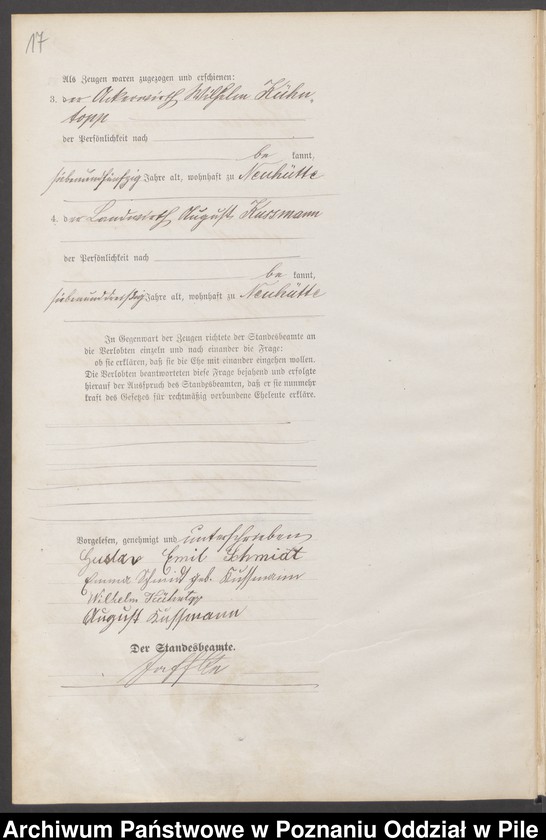 17
Als Zeugen waren zugezogen und erschienen:
3. der Ackerwirth Wilhelm Kühn-
topp
der Persönlichkeit nach
be kannt,
siebenundfünfzig Jahre alt, wohnhaft zu Neuhütte
4. der Landwirth August Kussmann
der Persönlichkeit nach
be kannt,
siebenunddreißig Jahre alt, wohnhaft zu Neuhütte
In Gegenwart der Zeugen richtete der Standesbeamte an
die Verlobten einzeln und nach einander die Frage:
ob sie erklären, daß sie die Ehe mit einander eingehen wollen.
Die Verlobten beantworteten diese Frage bejahend und erfolgte
hierauf der Ausspruch des Standesbeamten, daß er sie nunmehr
kraft des Gesetzes für rechtmäßig verbundene Eheleute erkläre.
Vorgelesen, genehmigt und unterschrieben
Gustav Emil Schmidt
Emma Schmidt geb. Kussmann
Wilhelm Kühntopp
August Kussmann
Der Standesbeamte.
Archiwum Państwowe w Poznaniu Oddział w Pile